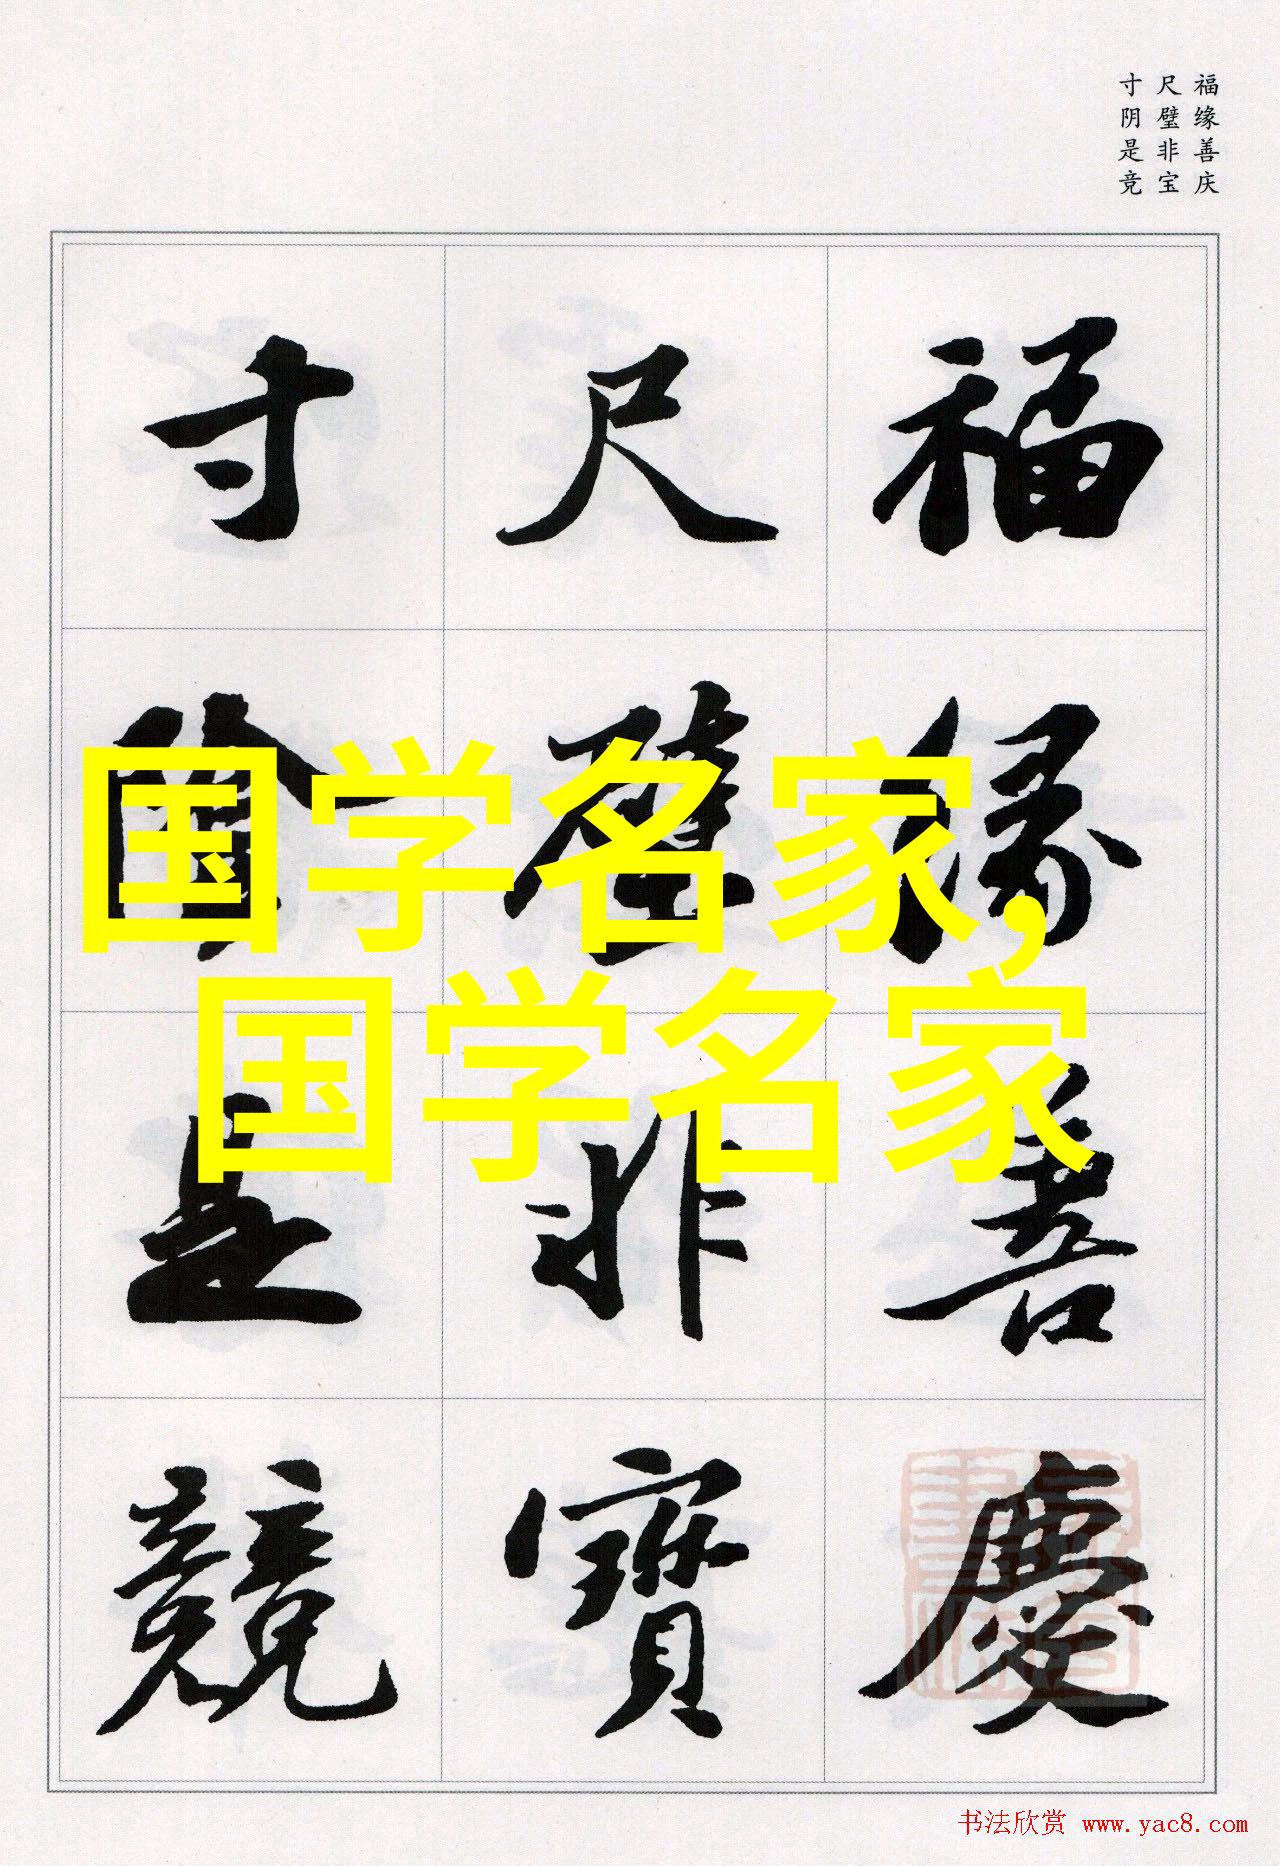 福缘善庆
尺璧非宝
寸阴是竞
福緣善慶
尺璧非寶
寸陰是競
国学名家,
国学名家
书法欣赏 www.yac8.com